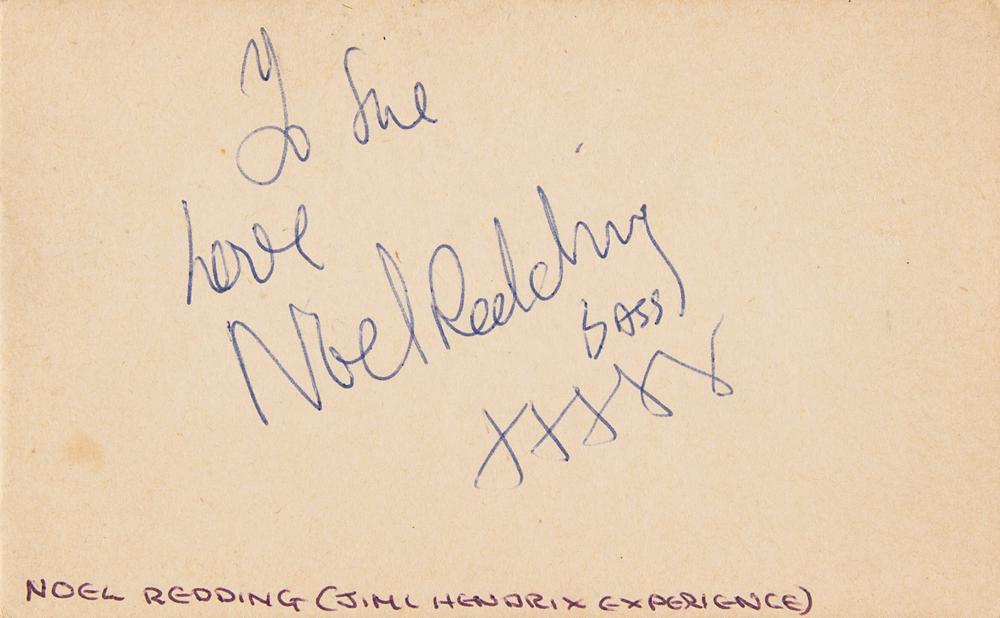 To Sue
Love
Noel Redding
BASS
XXXXX
NOEL REDDING (JIMI HENDRIX EXPERIENCE)